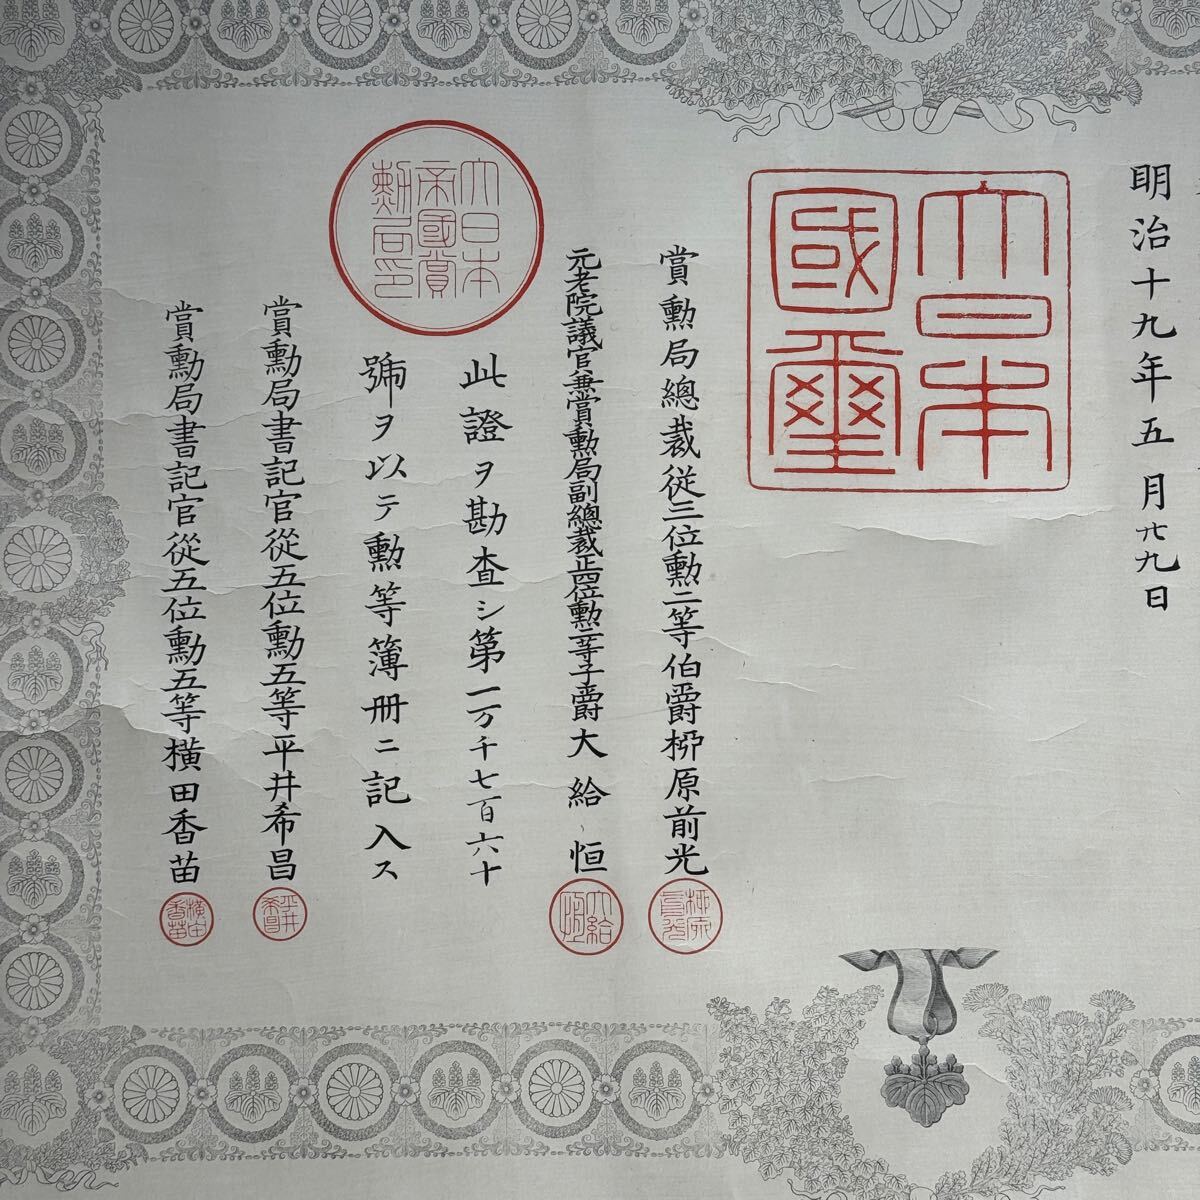 明治十九年五月廿九日
大日本
國璽
賞勳局總裁從三位勳二等伯爵柳原前光
柳原
前光
元老院議官兼賞勳局副總裁正四位勳二等子爵大給恒
大給
恒
此證ヲ勘査シ第一万千七百六十
號ヲ以テ勳等簿册ニ記入ス
大日本
帝國賞
勳局印
賞勳局書記官從五位勳五等平井希昌
平井
希昌
賞勳局書記官從五位勳五等橫田香苗
橫田
香苗